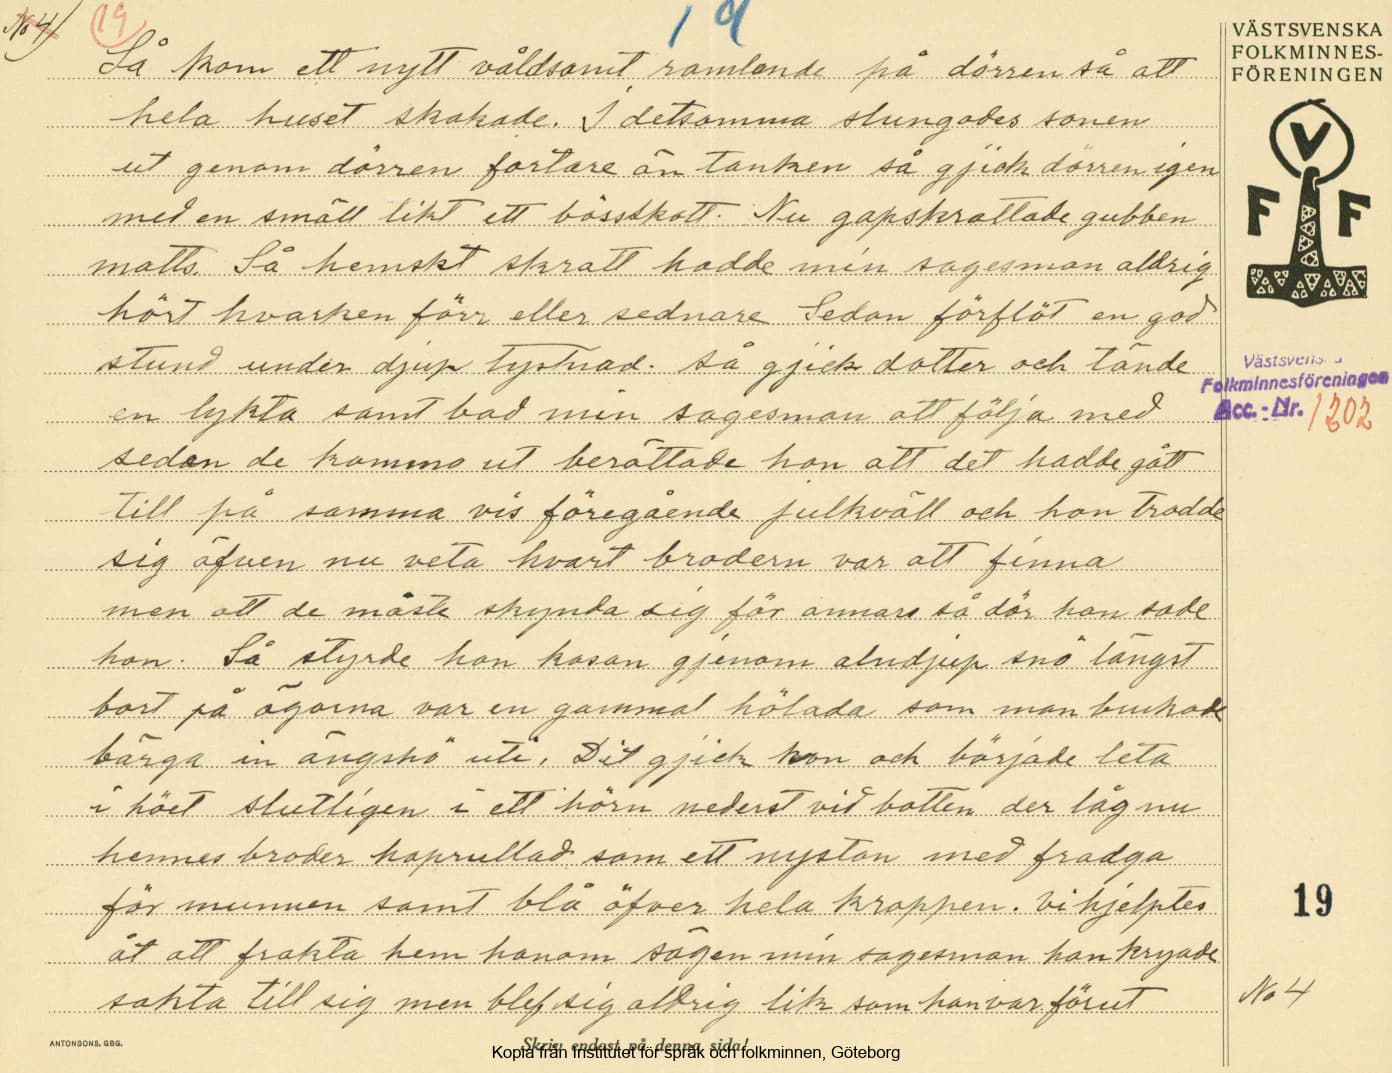 No 4
19
19
VÄSTSVENSKA
FOLKMINNES-
FÖRENINGEN
V
F F
Så kom ett nytt våldsamt ramlande på dörren så att
hela huset skakade. I detsamma slungades sonen
ut genom dörren fortare än tanken så gjick dörren igen
med en smäll likt ett bösskott. Nu gapskrattade gubben
matts. Så hemskt skratt hadde min sagesman aldrig
hört hvarken förr eller sednare Sedan förflöt en god
stund under djup tystnad. Så gjick dotter och tände
en lykta samt bad min sagesman att följa med
sedan de kommo ut berättade hon att det hadde gått
till på samma vis föregående julkväll och hon trodde
sig äfven nu veta hvart brodern var att finna
men att de måste skynda sig för annars så dör han sade
hon. Så styrde hon kosan gjenom alndjup snö längst
bort på ägorna var en gammal hölada som man brukade
bärga in ängshö uti, Dit gjick hon och började leta
i höet slutligen i ett hörn nederst vid botten der låg nu
hennes broder hoprullad som ett nystan med fradga
för munnen samt blå öfver hela kroppen. vi hjelptes
åt att frakta hem honom sägen min sagesman han kryade
sakta till sig men blef sig aldrig lik som han var förut
Västsvenska
Folkminnesföreningen
Acc. - Nr. 1202
19
No 4
ANTONSONS, GBG.
Skriv endast på denna sida!
Kopia från Institutet för språk och folkminnen, Göteborg